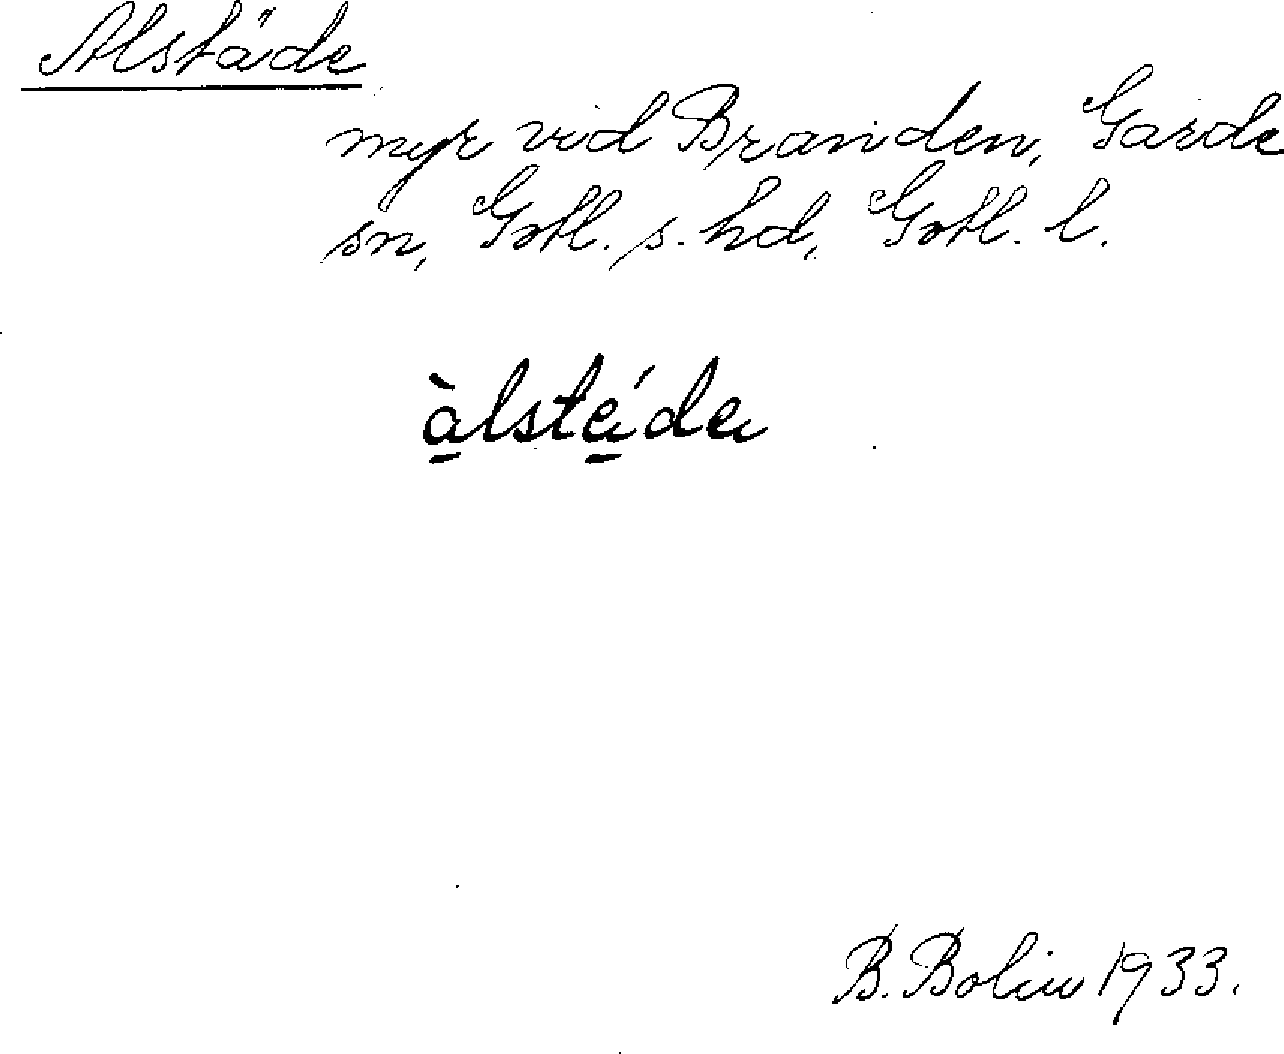 Alstäde
myr vid Branden, Garde
sn, Gotl. s. hd, Gotl. l.
àlstáda
B. Bolin 1933.